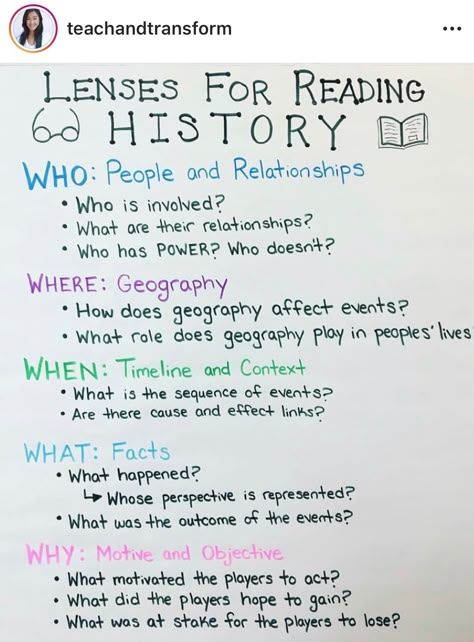 teachandtransform
LENSES FOR READING
HISTORY
WHO: People and Relationships
• Who is involved?
• What are their relationships?
• Who has POWER? Who doesn't?
WHERE: Geography
• How does geography affect events?
• What role does geography play in peoples' lives
WHEN: Timeline and Context
• What is the sequence of events?
• Are there cause and effect links?
WHAT: Facts
• What happened?
↳ Whose perspective is represented?
• What was the outcome of the events?
WHY: Motive and Objective
• What motivated the players to act?
• What did the players hope to gain?
• What was at stake for the players to lose?